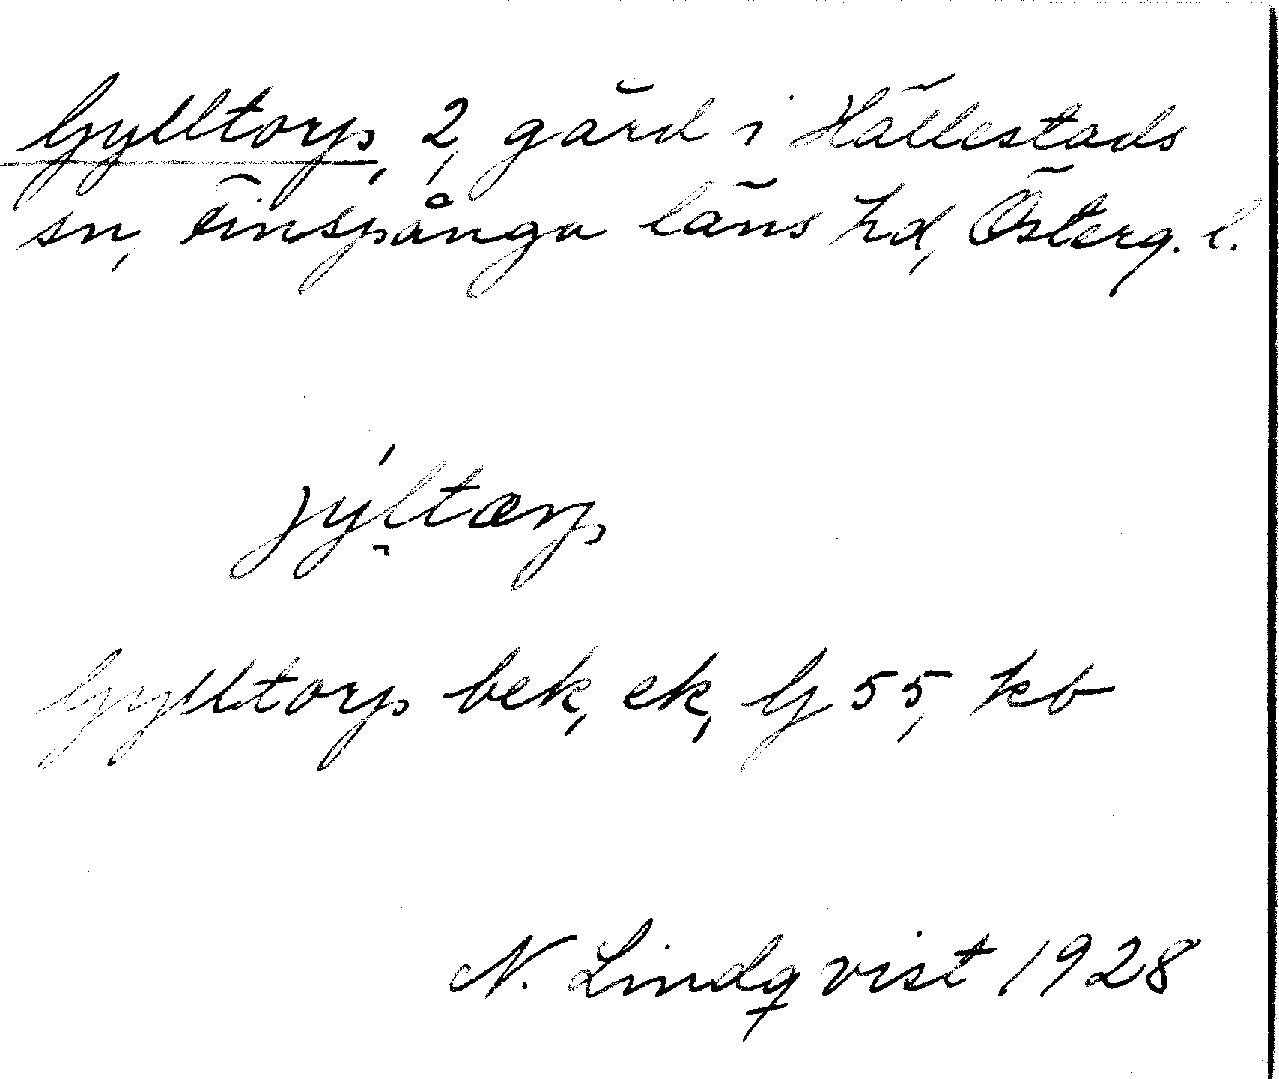 Gylltorp, 2, gård i Hällestads
sn, Finspånga läns hd, Österg. l.
jýltærp
Gylltorp bek, ek, G 55, kb
N. Lindqvist 1928